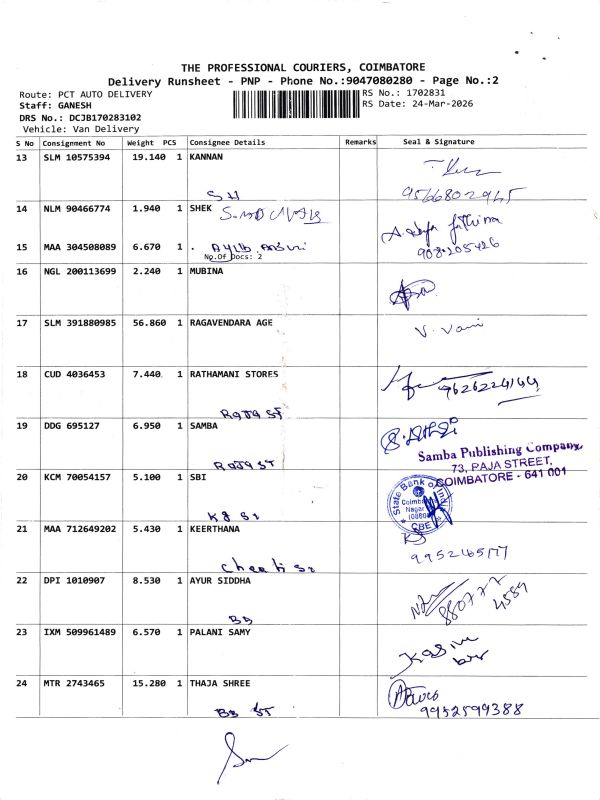 THE PROFESSIONAL COURIERS, COIMBATORE
Delivery Runsheet - PNP - Phone No.:9047080280 - Page No.:2
Route: PCT AUTO DELIVERY
RS No.: 1702831
Staff: GANESH
RS Date: 24-Mar-2026
DRS No.: DCJB170283102
Vehicle: Van Delivery
S No Consignment No Weight PCS Consignee Details Remarks Seal & Signature
13 SLM 10575394 19.140 1 KANNAN
14 NLM 90466774 1.940 1 SHEK
15 MAA 304508089 6.670 1 .
No.Of Docs: 2
16 NGL 200113699 2.240 1 MUBINA
17 SLM 391880985 56.860 1 RAGAVENDARA AGE
V. Vani
18 CUD 4036453 7.440 1 RATHAMANI STORES
Raja ST
19 DDG 695127 6.950 1 SAMBA
Raja ST
Samba Publishing Company
73, PAJA STREET,
COIMBATORE - 641 001
20 KCM 70054157 5.100 1 SBI
State Bank of
CBE
21 MAA 712649202 5.430 1 KEERTHANA
22 DPI 1010907 8.530 1 AYUR SIDDHA
880777
4589
23 IXM 509961489 6.570 1 PALANI SAMY
24 MTR 2743465 15.280 1 THAJA SHREE
BB ST
9952599388